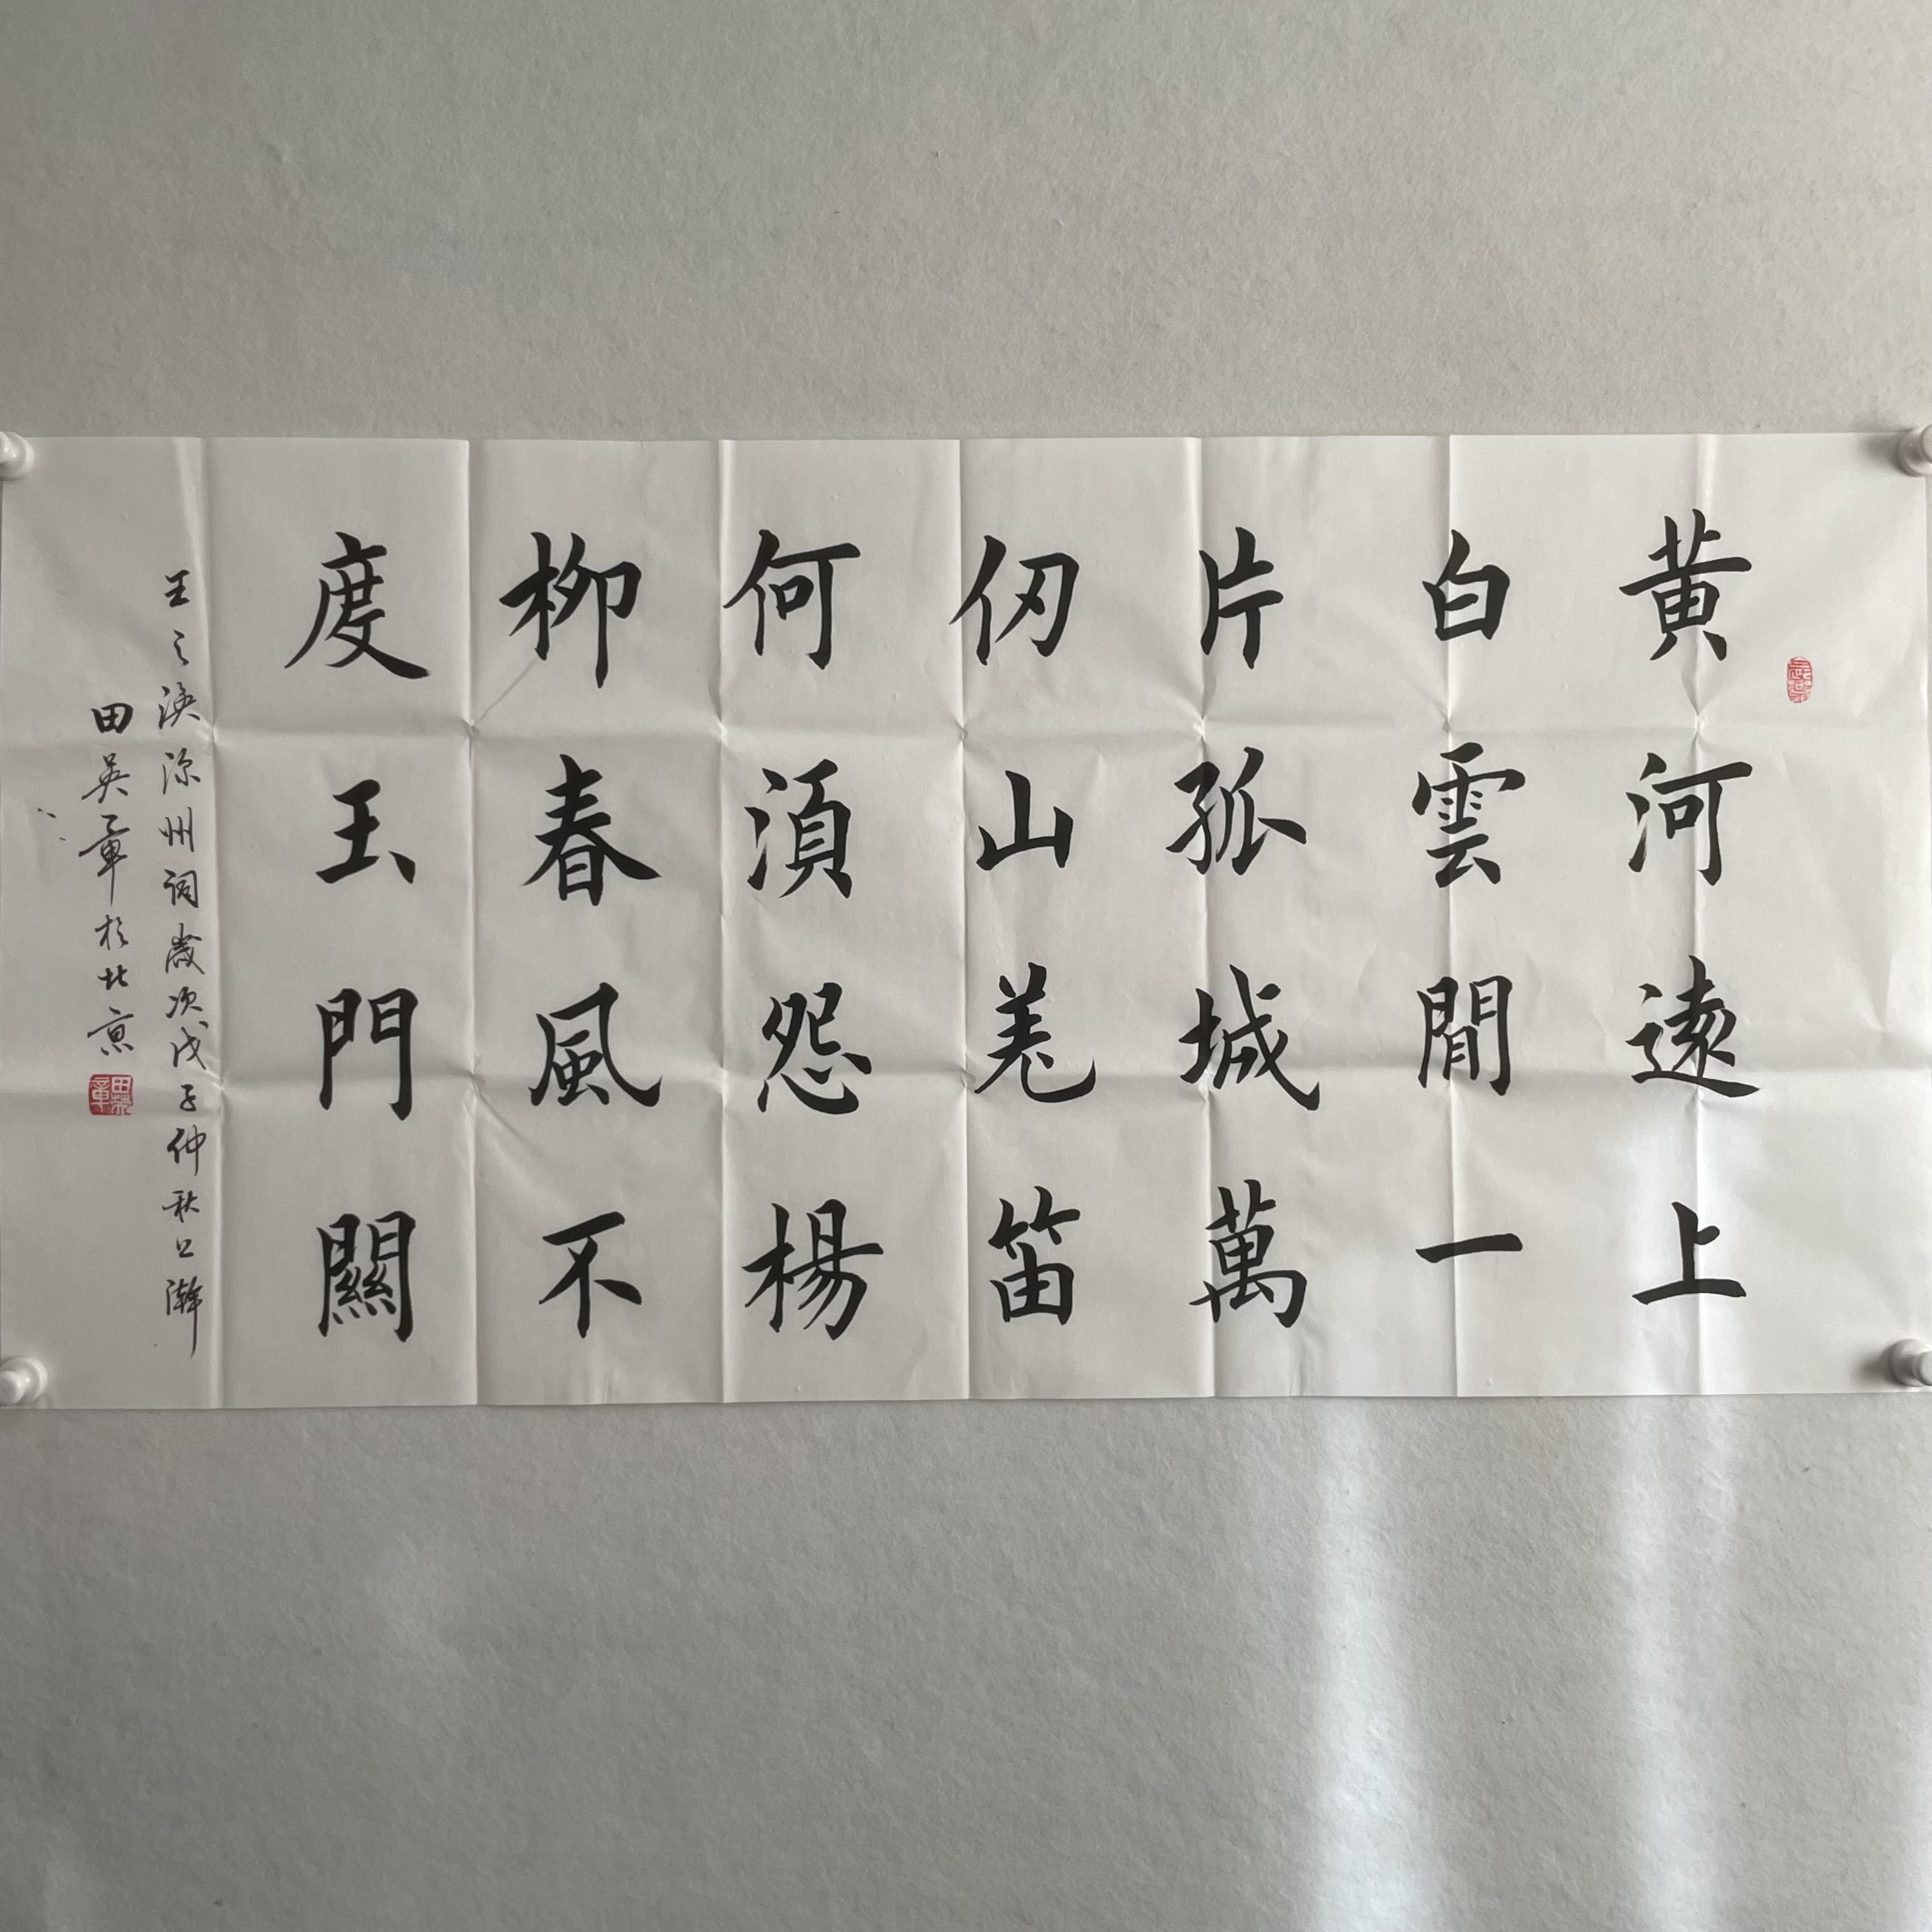 黄河遠上
白雲閒一
片孤城萬
仞山羌笛
何須怨楊
柳春風不
度玉門關
王之渙涼州詞歲次戊子仲秋
田英章於北京
田英章